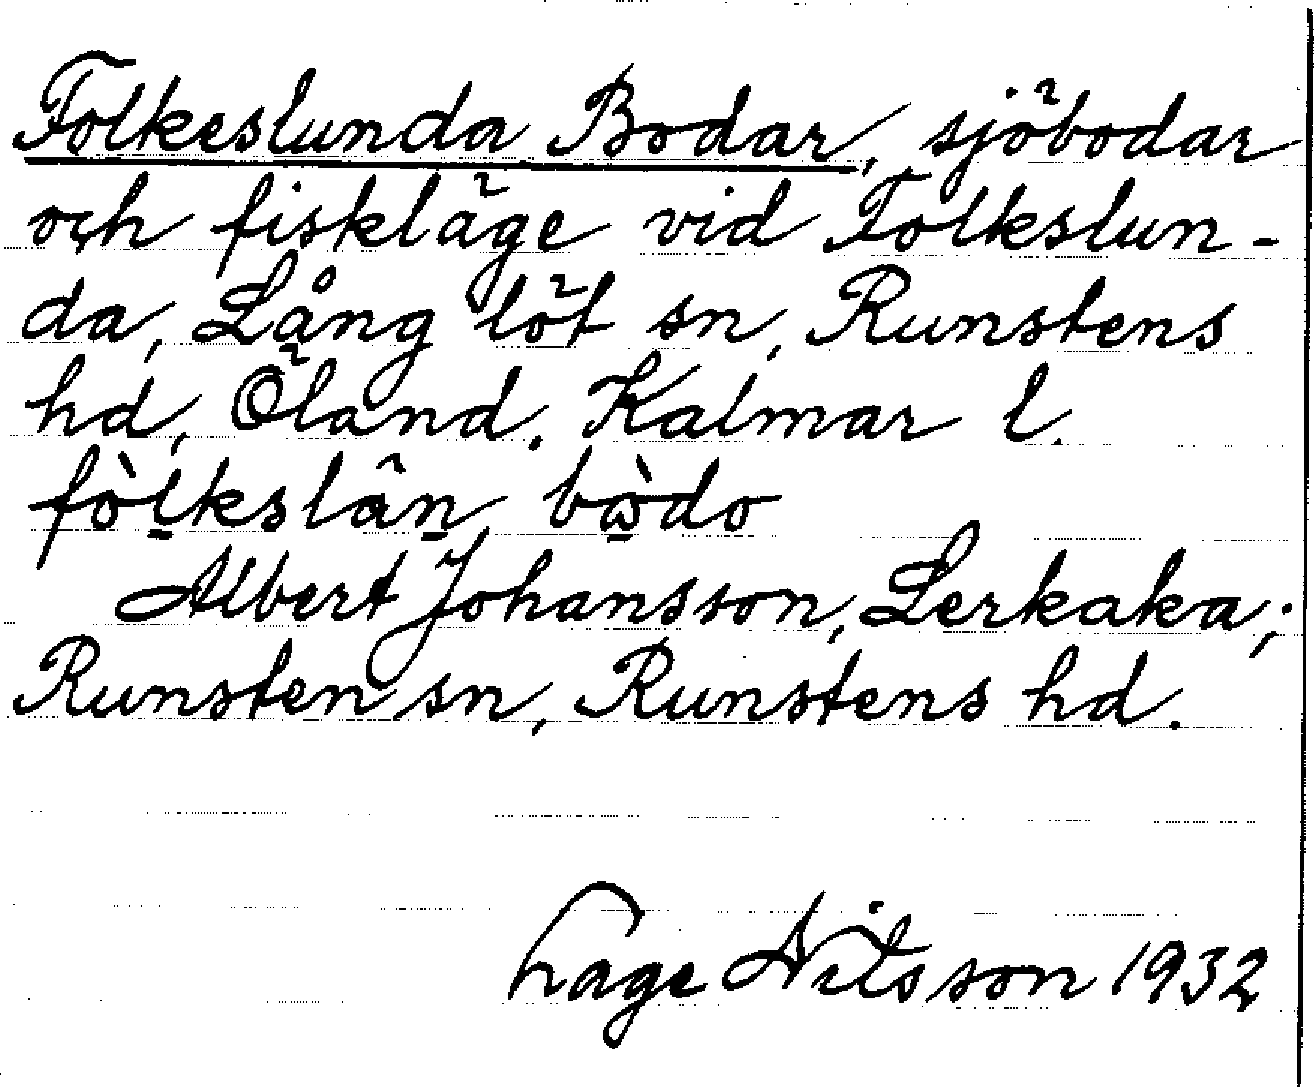 Folkeslunda Bodar, sjöbodar
och fiskläge vid Folkslun-
da, Lång löt sn, Runstens
hd, Öland. Kalmar l.
fòl̠kslân̠ bὼ̠do
Albert Johansson, Lerkaka;
Runsten sn, Runstens hd.
Lage Nilsson 1932